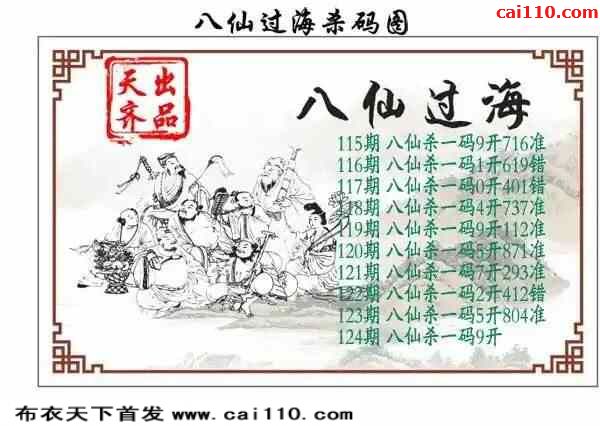 cai110.com
八仙过海杀码图
天齐
出品
八仙过海
115期 八仙杀一码9开716准
116期 八仙杀一码1开619错
117期 八仙杀一码0开401错
118期 八仙杀一码4开737准
119期 八仙杀一码9开112准
120期 八仙杀一码5开871准
121期 八仙杀一码7开293准
122期 八仙杀一码2开412错
123期 八仙杀一码5开804准
124期 八仙杀一码9开
布衣天下首发 www.cai110.com